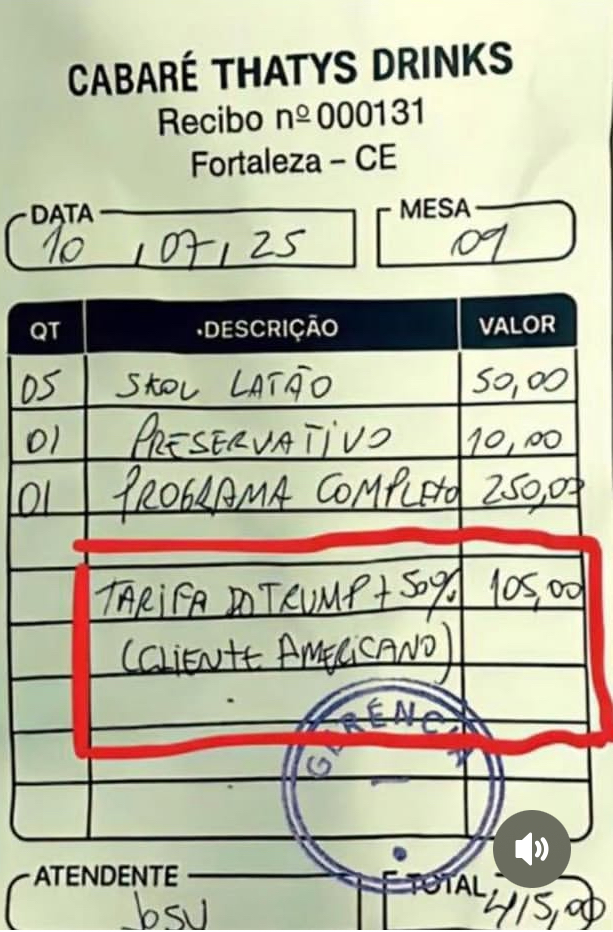 CABARÉ THATYS DRINKS
Recibo nº 000131
Fortaleza – CE
DATA MESA
10 , 07 , 25 09
QT ·DESCRIÇÃO VALOR
05 SKOL LATÃO 50,00
01 PRESERVATIVO 10,00
01 PROGRAMA COMPLETO 250,00
TARIFA DO TRUMP + 50% 105,00
(CLIENTE AMERICANO)
GERÊNCIA
ATENDENTE TOTAL
415,00